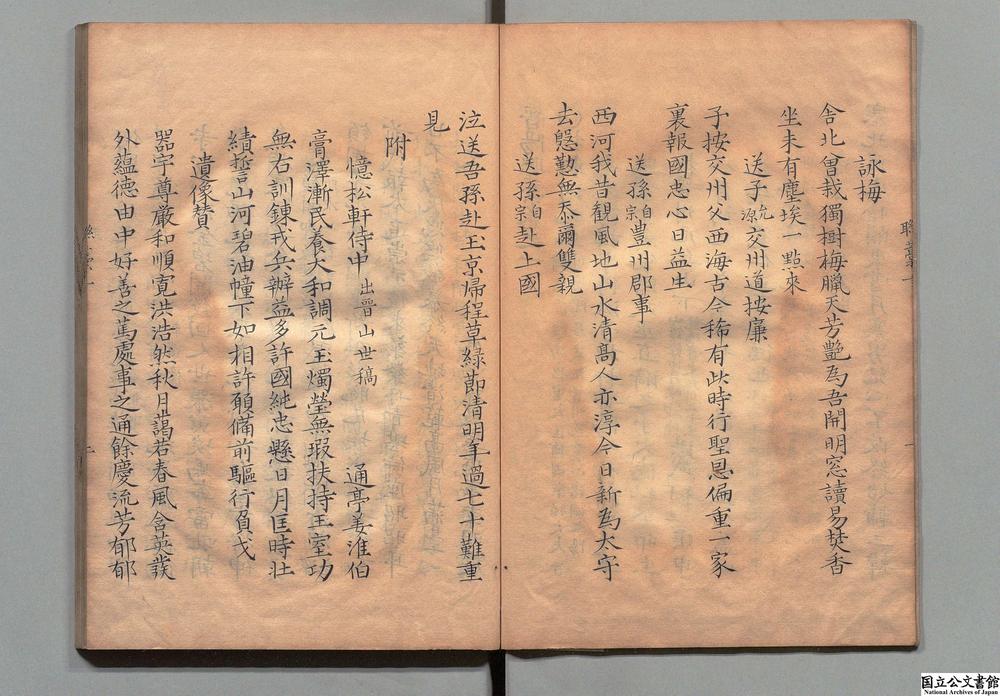 詠梅
舎北曽栽獨樹梅臘天芳艶為吾開明窓讀易焚香
坐未有塵埃一點來
送子允源交州道按廉
子按交州父西海古今稀有此時行聖恩偏重一家
裏報國忠心日益生
送孫自宗豊州郡事
西河我昔観風地山水清髙人亦淳今日新為太守
去慇懃無忝爾雙親
送孫自宗赴上國
泣送吾孫赴玉京帰程草緑節清明年過七十難重
見
附
憶松軒侍中 出晋山世稿 通亭姜淮伯
膏澤漸民養大和調元玉燭瑩無瑕扶持王室功
無右訓錬戎兵辦益多許國純忠懸日月匡時壮
績誓山河碧油幢下如相許願備前驅行負戈
遺像賛
噐宇尊厳和順寛洪浩然秋月藹若春風含英𤼵
外蘊徳由中好善之篤處事之通餘慶流芳郁郁
国立公文書館
National Archives of Japan